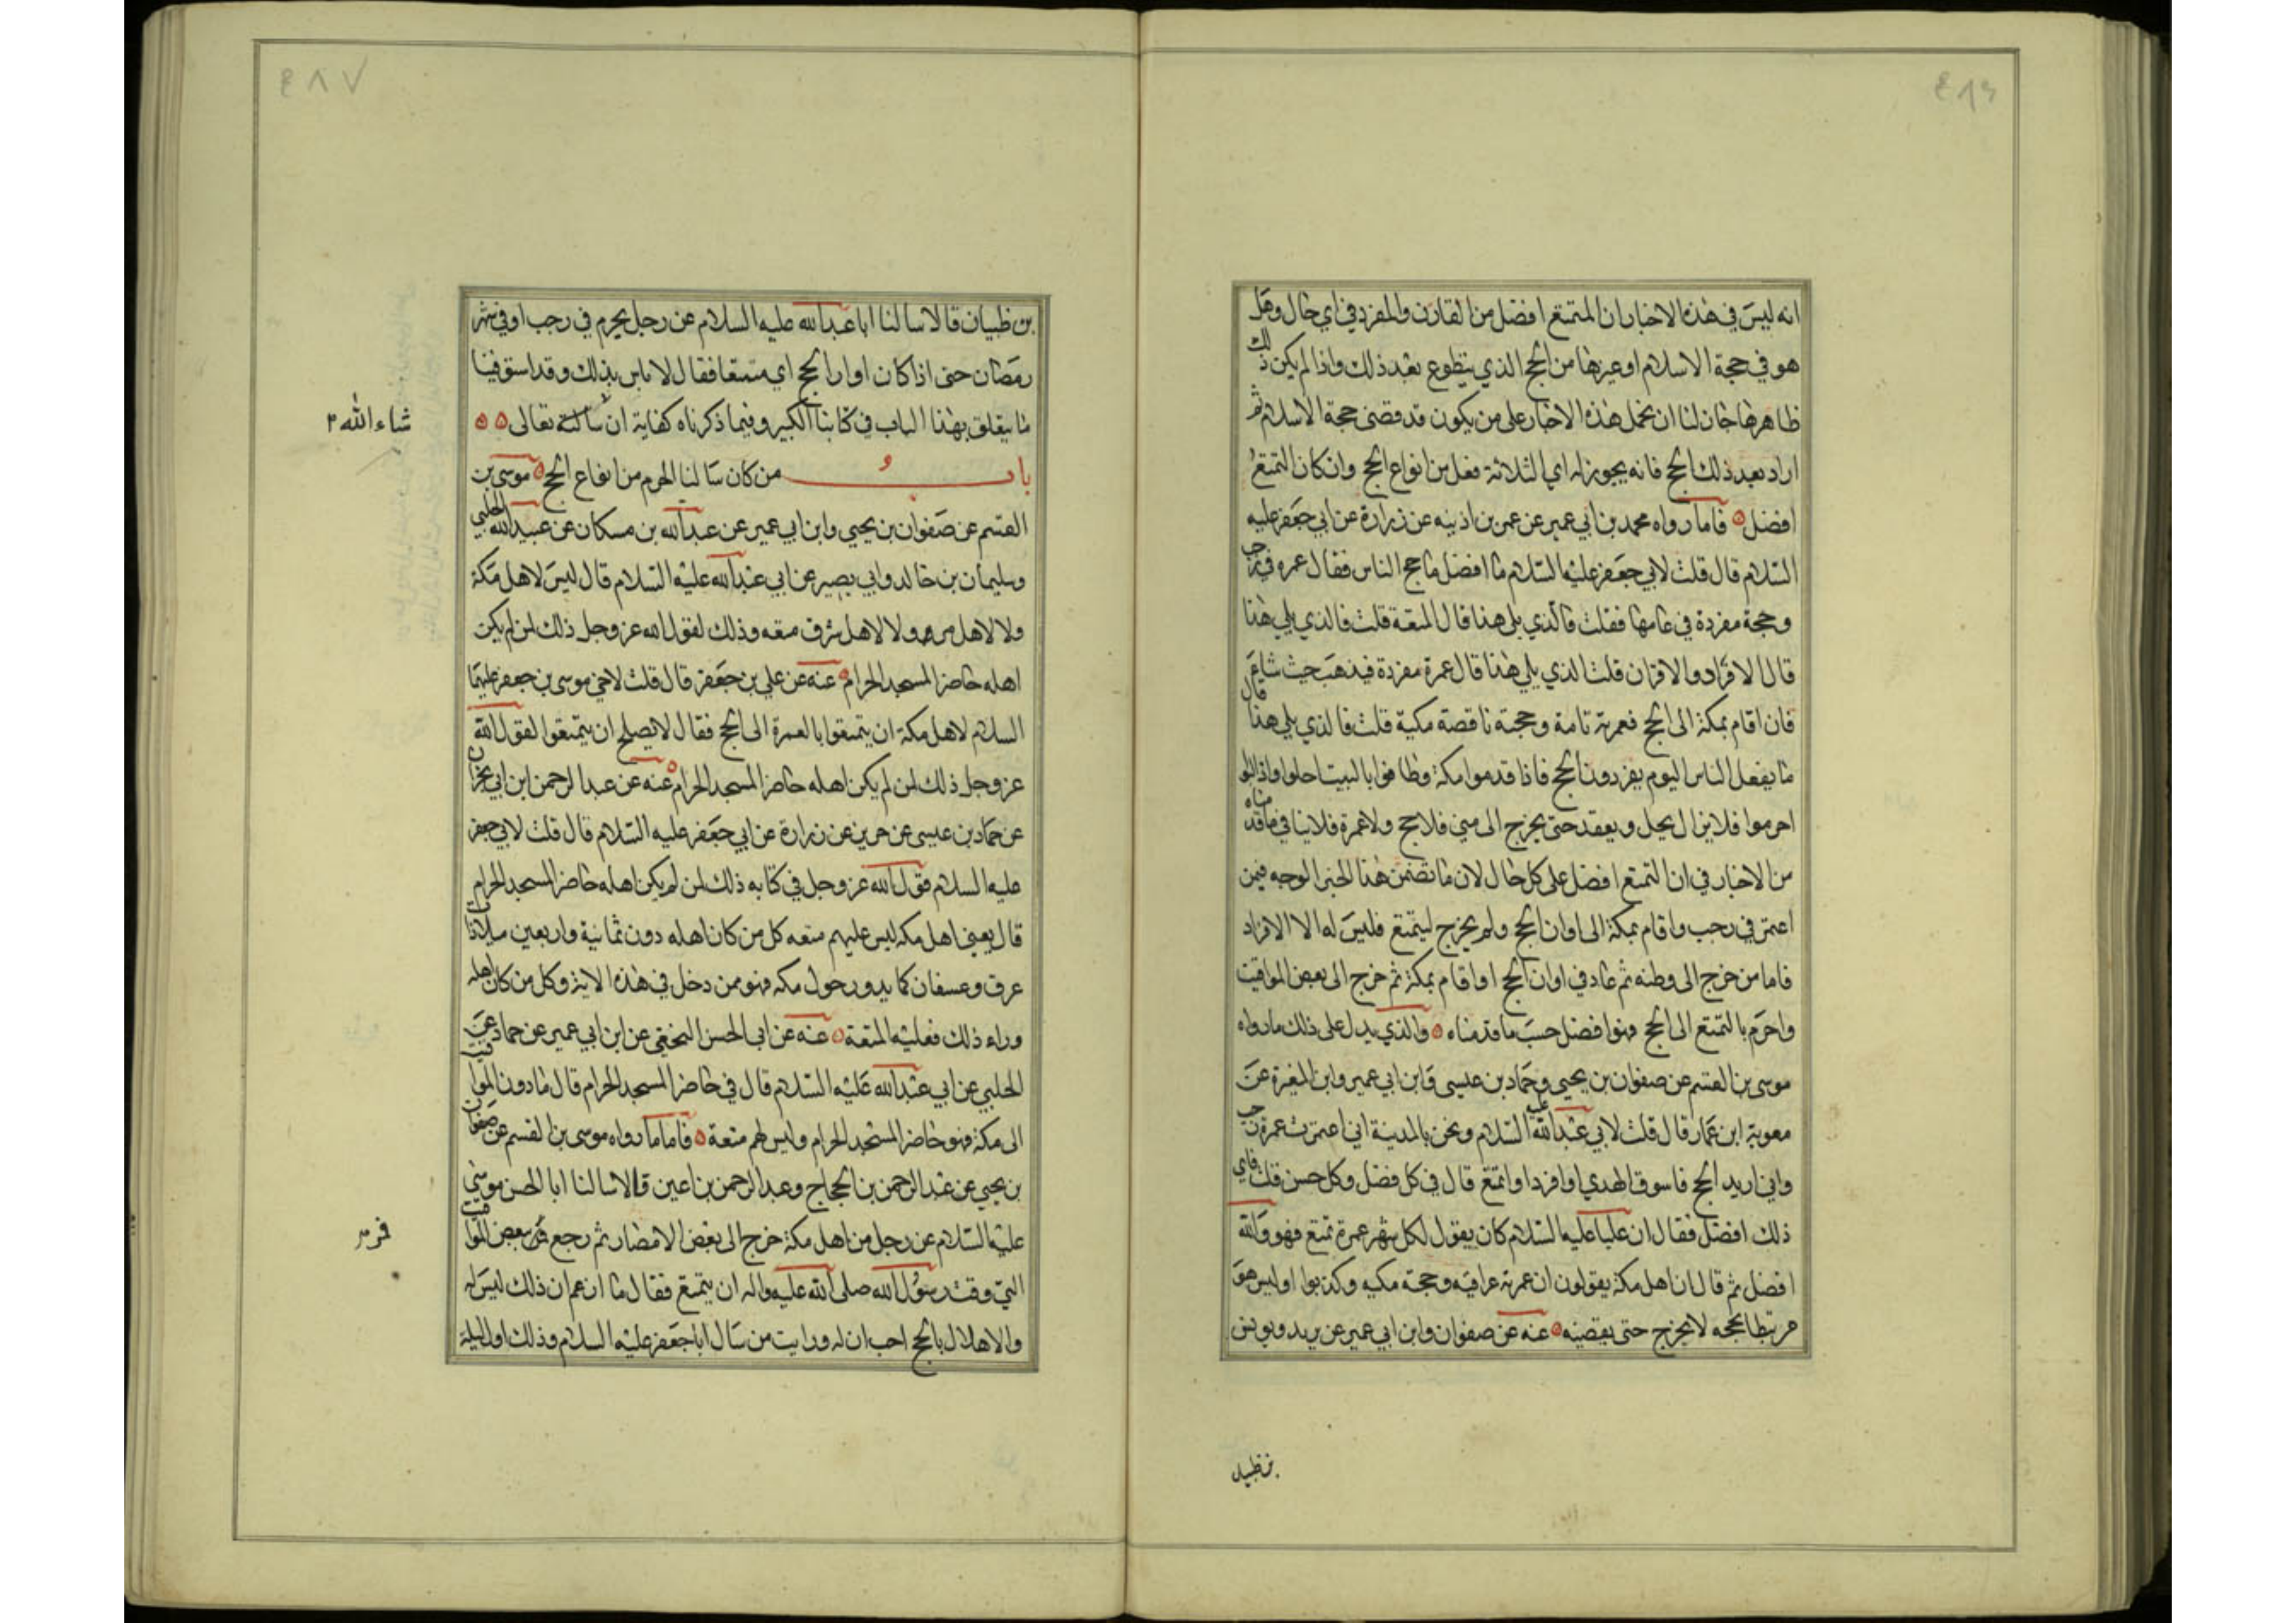 ٤٨٦
انه ليس في هذه الاخبار ان المتمتع افضل من القارن والمفرد في اي حال وهل
هو في حجة الاسلام او غيرها من الحج الذي يتطوع بعد ذلك واذا لم يكن ذلك
ظاهرها جاز لنا ان نحمل هذه الاخبار على من يكون قد قضى حجة الاسلام ثم
اراد بعد ذلك الحج فانه يجوز له اي الثلاثة فعل من انواع الحج وان كان التمتع
افضل ه فاما رواه محمد بن ابي عمير عن عمر بن اذينه عن زرارة عن ابي جعفر عليه
السلام قال قلت لابي جعفر عليه السلام ما افضل ما حج الناس فقال عمره في رجب
وحجة مفردة في عامها فقلت فالذي يلي هذا قال المتعة قلت فالذي يلي هذا
قال الافراد والاقران قلت الذي يلي هذا قال عمرة مفردة فيذهب حيث شاء
فان اقام بمكة الى الحج فعمرته تامة وحجته ناقصة مكية قلت فالذي يلي هذا قال
ما يفعل الناس اليوم يفردون الحج فاذا قدموا مكة وطافوا بالبيت احلوا واذا لبوا
احرموا فلا يزال يحل ويعقد حتى يخرج الى منى فلا حج ولا عمرة فلا ينافي ما قدمناه
من الاخبار في ان التمتع افضل على كل حال لان ما تضمن هذا الخبر الوجه فيمن
اعتمر في رجب واقام بمكة الى اوان الحج ولم يخرج ليتمتع فليس له الا الافراد
فاما من خرج الى وطنه ثم عاد في اوان الحج او اقام بمكة ثم خرج الى بعض المواقيت
واحرم بالتمتع الى الحج فهو افضل حسب ما قدمناه ه والذي يدل على ذلك ما رواه
موسى بن القسم عن صفوان بن يحيى وحماد بن عيسى وابن ابي عمير وابن المغيرة عن
معوية ابن عمار قال قلت لابي عبد الله عليه السلام ونحن بالمدينة اني اعتمرت عمرة في رجب
واني اريد الحج فاسوق الهدي او افرد او اتمتع قال في كل فضل وكل حسن قلت فاي
ذلك افضل فقال ان عليا عليه السلام كان يقول لكل شهر عمرة تمتع فهو والله
افضل ثم قال ان اهل مكة يقولون ان عمرته عراقيه وحجته مكيه وكذبوا اوليس هو
مرتبطا بحجه لا يخرج حتى يقضيه ه عنه عن صفوان وابن ابي عمير عن بريد ويونس
بن ظبيان
٤٨٧
بن ظبيان قالا سالنا ابا عبد الله عليه السلام عن رجل يحرم في رجب او في شهر
رمضان حتى اذا كان اوان الحج اي متمتعا فقال لا باس بذلك وقد استوفينا
ما يتعلق بهذا الباب في كتابنا الكبير وفيما ذكرناه كفاية ان تعالى ه ه
شاء الله
باب من كان ساكنا الحرم من انواع الحج ه موسى بن
القسم عن صفوان بن يحيى وابن ابي عمير عن عبد الله بن مسكان عن عبيد الله الحلبي
وسليمان بن خالد وابي بصير عن ابي عبد الله عليه السلام قال ليس لاهل مكة
ولا لاهل مر ولا لاهل سرف متعه وذلك لقول الله عز وجل ذلك لمن لم يكن
اهله حاضر المسجد الحرام ه عنه عن علي بن جعفر قال قلت لاخي موسى بن جعفر عليهما
السلام لاهل مكة ان يتمتعوا بالعمرة الى الحج فقال لا يصلح ان يتمتعوا لقول الله
عز وجل ذلك لمن لم يكن اهله حاضر المسجد الحرام ه عنه عن عبد الرحمن ابن ابي نجران
عن حماد بن عيسى عن حريز عن زرارة عن ابي جعفر عليه السلام قال قلت لابي جعفر
عليه السلام قول الله عز وجل في كتابه ذلك لمن لم يكن اهله حاضر المسجد الحرام
قال يعني اهل مكه ليس عليهم متعه كل من كان اهله دون ثمانية واربعين ميلا ذات
عرق وعسفان كما يدور حول مكه فهو ممن دخل في هذه الاية وكل من كان اهله
وراء ذلك فعليه المتعة ه عنه عن ابي الحسن النخعي عن ابن ابي عمير عن حماد عن
الحلبي عن ابي عبد الله عليه السلام قال في حاضر المسجد الحرام قال ما دون المواقيت
الى مكة فهو حاضر المسجد الحرام وليس لهم متعة ه فاما ما رواه موسى بن القسم عن صفوان
بن يحيى عن عبد الرحمن بن الحجاج وعبد الرحمن بن اعين قالا سالنا ابا الحسن موسى
عليه السلام عن رجل من اهل مكة خرج الى بعض الامصار ثم رجع ببعض المواقيت
فمر
التي وقت رسول الله صلى الله عليه واله ان يتمتع فقال ما ازعم ان ذلك ليس له
والاهلال بالحج احب ان له ورايت من سال ابا جعفر عليه السلام وذلك اول ليلة